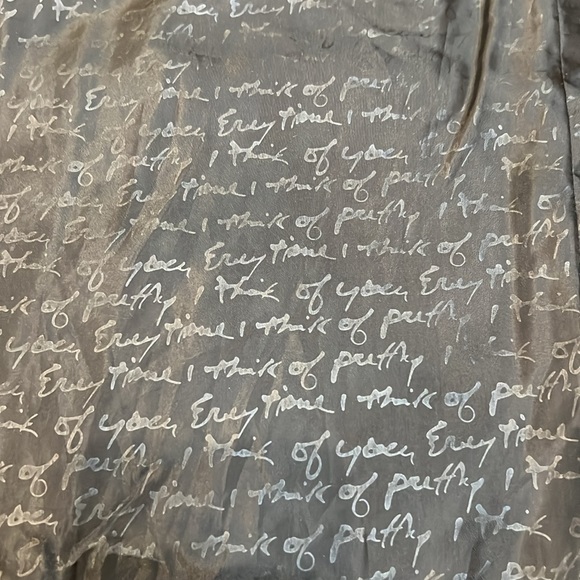 you Every time i think
think of pretty
of you Every
you Every time i think of pretty
i think of you Every time i think of
think of pretty i think of you Every time
of you Every time i think of pretty
you Every time i think of pretty i think of
think of you Every time i think of pretty
think of pretty i think of you Every time
you Every time i think of pretty i think
Every time i think of pretty i of
think of you Every time i think of pretty
of pretty i think of you Every time
you Every time i think of pretty i think
Every time i think of pretty i think